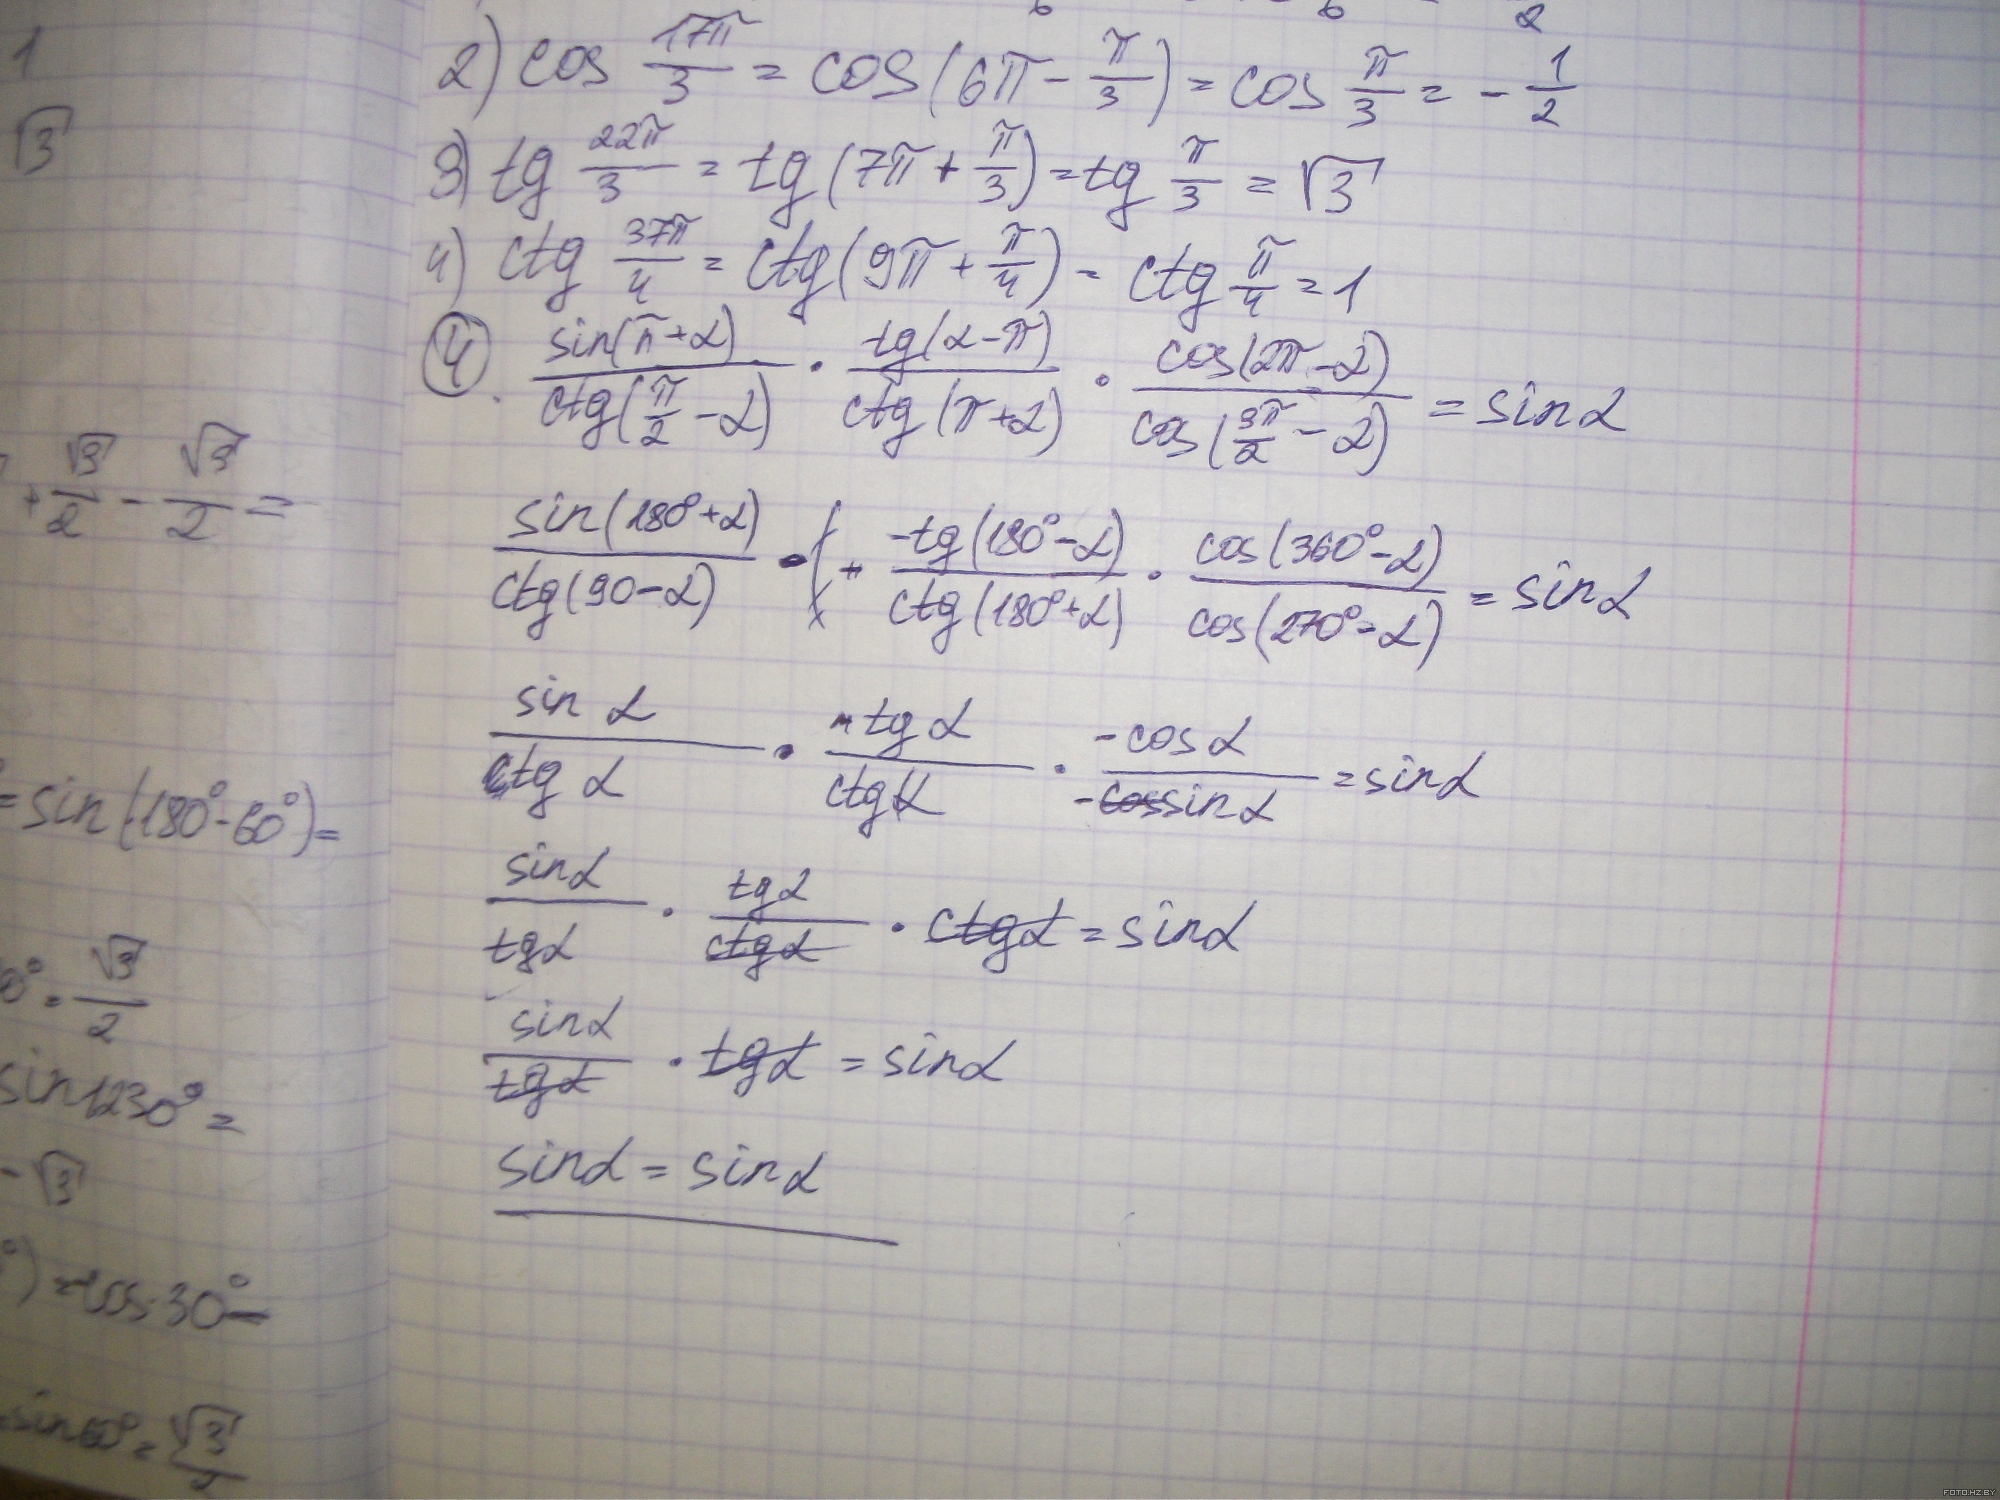 1
√3
+ √3/2 - √3/2 =
= sin(180° - 60°) =
0° = √3/2
sin1230° =
- √3
°) = cos 30° -
sin60° = √3/2
2) cos 17π/3 = cos(6π - π/3) = cos π/3 = - 1/2
3) tg 22π/3 = tg(7π + π/3) = tg π/3 = √3
4) ctg 37π/4 = ctg(9π + π/4) = ctg π/4 = 1
④. sin(π+α)/ctg(π/2 - α) · tg(α-π)/ctg(π+α) · cos(2π-α)/cos(3π/2 - α) = sinα
sin(180°+α)/ctg(90-α) · -tg(180°-α)/ctg(180°+α) · cos(360°-α)/cos(270°-α) = sinα
sin α/ctg α · tg α/ctg α · -cosα/-sinα = sinα
sinα/tgα · tgα/ctgα · ctgα = sinα
sinα/tgα · tgα = sinα
sinα = sinα
FOTO.HZ.BY